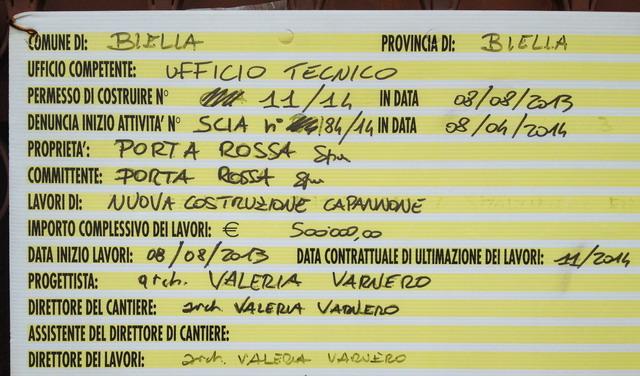 COMUNE DI: BIELLA PROVINCIA DI: BIELLA
UFFICIO COMPETENTE: UFFICIO TECNICO
PERMESSO DI COSTRUIRE N° 11/14 IN DATA 08/08/2013
DENUNCIA INIZIO ATTIVITA' N° SCIA n° 84/14 IN DATA 08/04/2014
PROPRIETA': PORTA ROSSA Spa
COMMITTENTE: PORTA ROSSA Spa
LAVORI DI: NUOVA COSTRUZIONE CAPANNONE
IMPORTO COMPLESSIVO DEI LAVORI: € 500000,00
DATA INIZIO LAVORI: 08/08/2013 DATA CONTRATTUALE DI ULTIMAZIONE DEI LAVORI: 11/2014
PROGETTISTA: arch. VALERIA VARNERO
DIRETTORE DEL CANTIERE: arch. VALERIA VARNERO
ASSISTENTE DEL DIRETTORE DI CANTIERE:
DIRETTORE DEI LAVORI: arch. VALERIA VARNERO